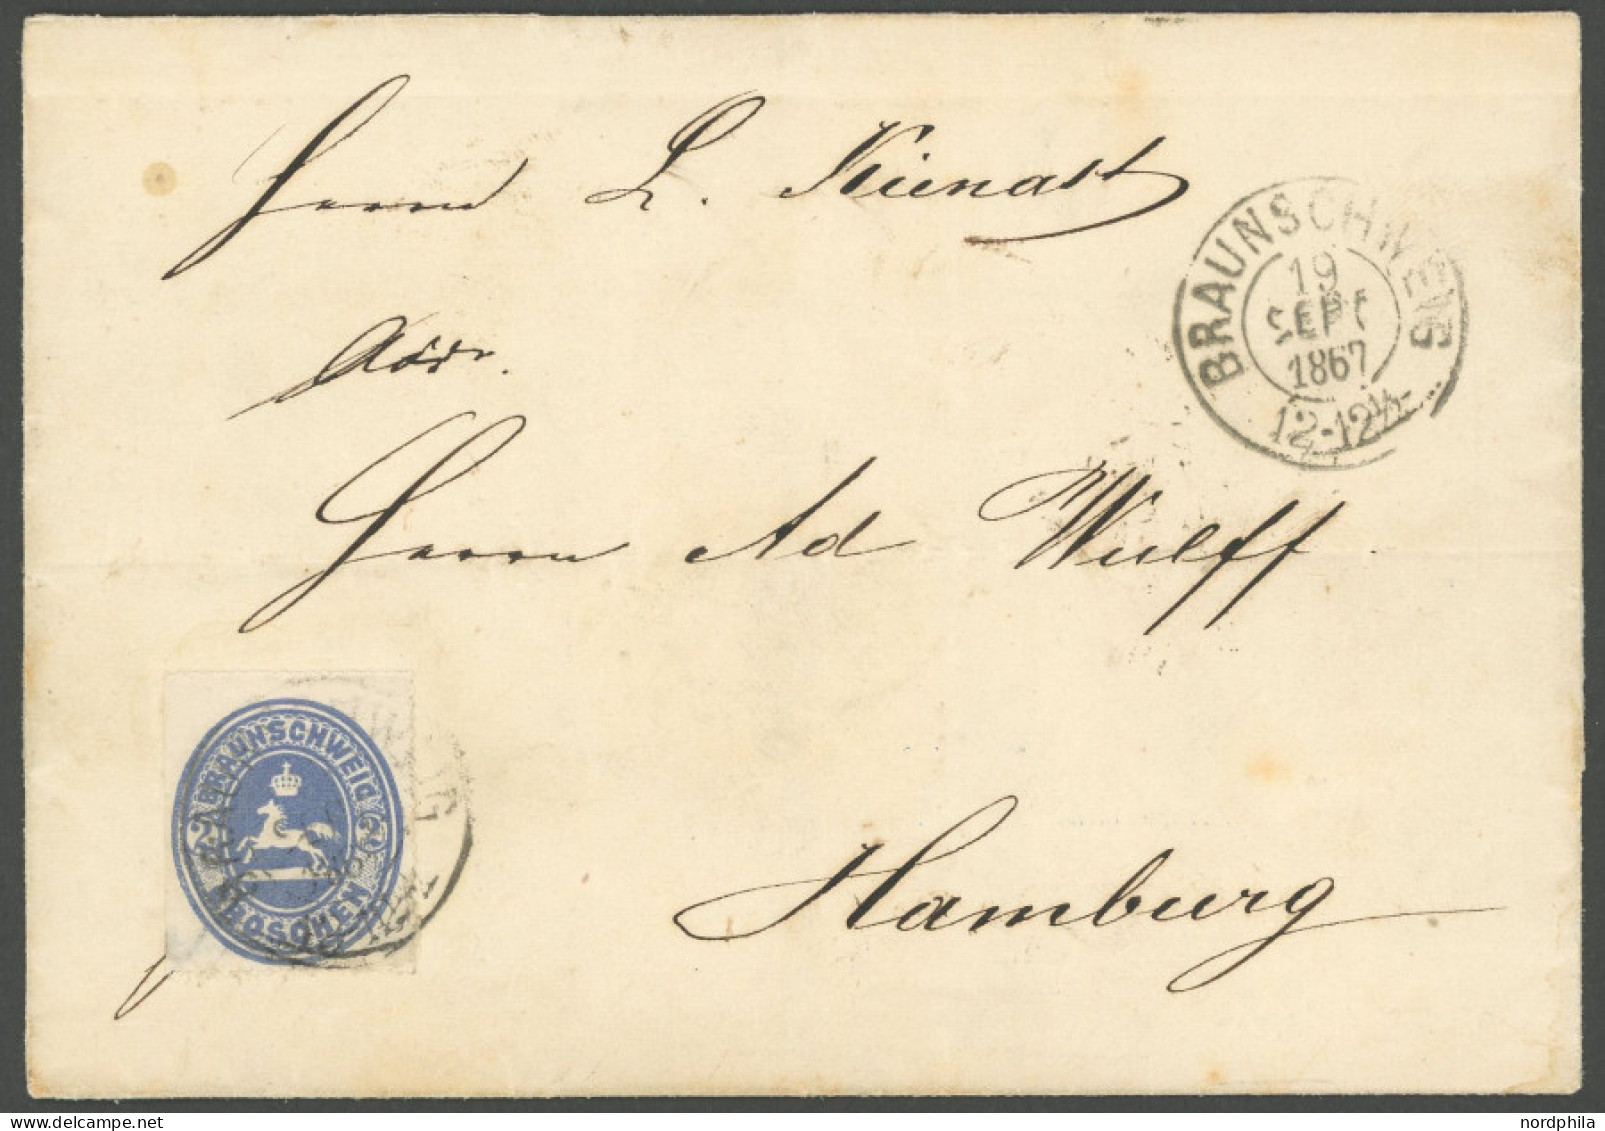 Herrn L. Kienast
BRAUNSCHWEIG
19
SEPT
1867
12-12½
Adr.
Herrn Ad Wulff
BRAUNSCHWEIG
2 2
GROSCHEN
Hamburg
nordphila